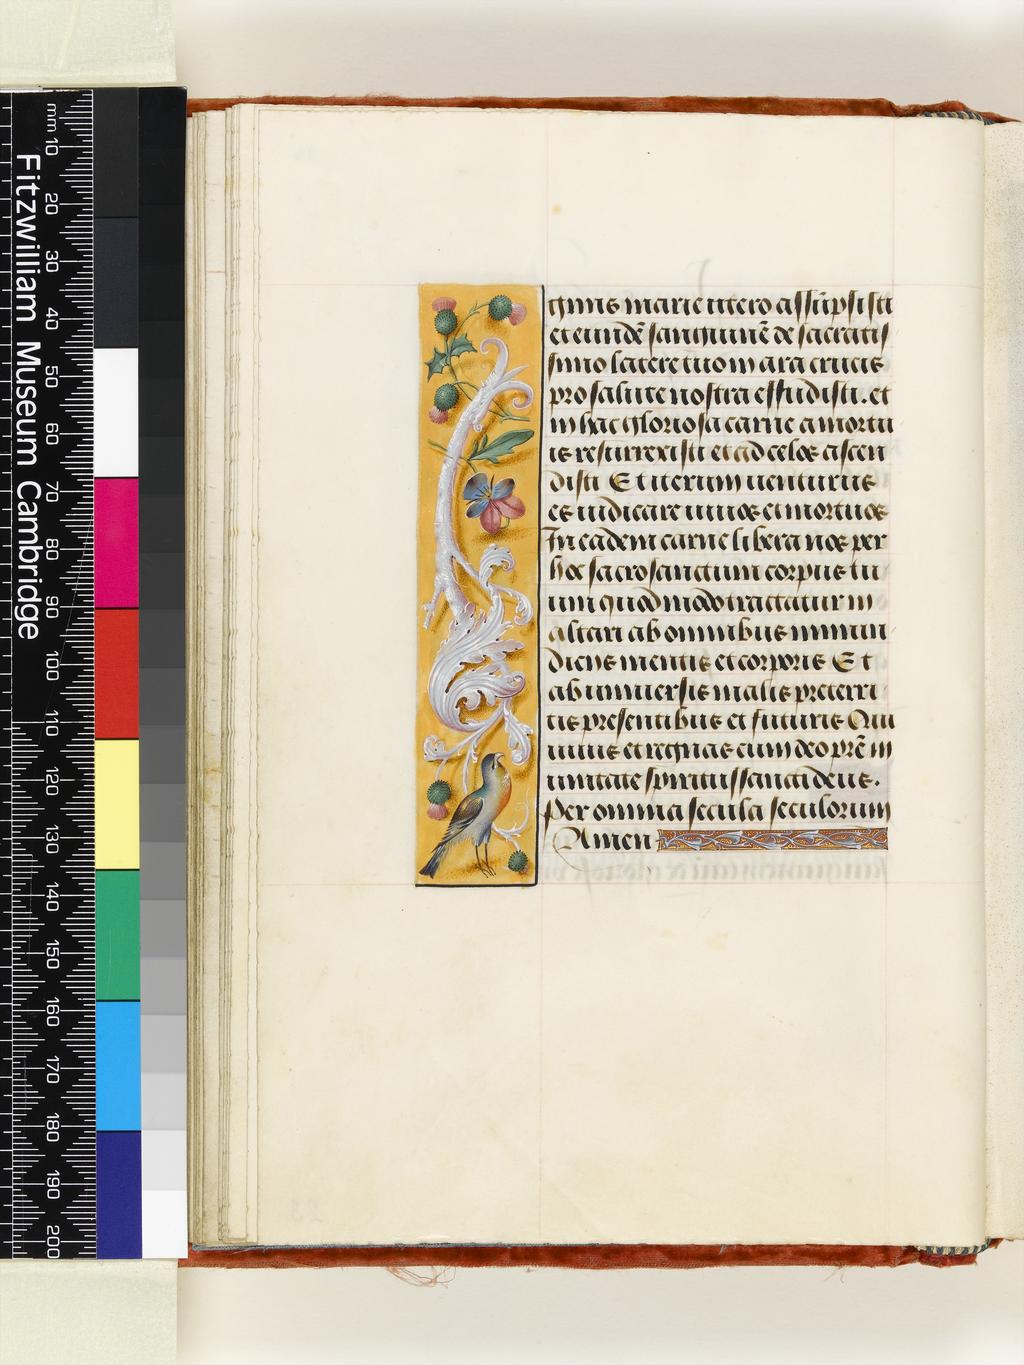 ginis marie utero assũpsisti
et eundẽ sanguinẽ de sacratis
simo latere tuo in ara crucis
pro salute nostra effudisti. et
in hac gloriosa carne a mortu
is resurrexisti et ad celos ascen
disti Et iterum uenturus
es iudicare uiuos et mortuos
In eadem carne libera nos per
hoc sacrosanctum corpus tu
um quod modo tractatur in
altari ab omnibus inmun
diciis mentis et corporis Et
ab uniuersis malis preterri
tis presentibus et futuris Qui
uiuis et regnas cum deo prẽ in
unitate spiritussancti deus.
Per omnia secula seculorum
Amen
Fitzwilliam Museum Cambridge
mm 10 20 30 40 50 60 70 80 90 100 110 120 130 140 150 160 170 180 190 200